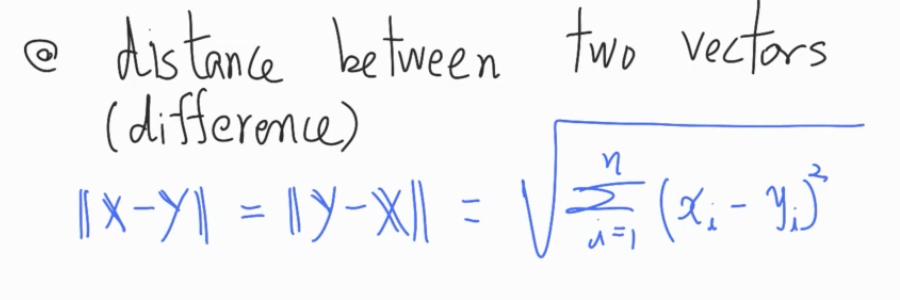 @ distance between two vectors
(difference)
‖X-Y‖ = ‖Y-X‖ = √(∑_{i=1}^{n} (x_i - y_i)²)